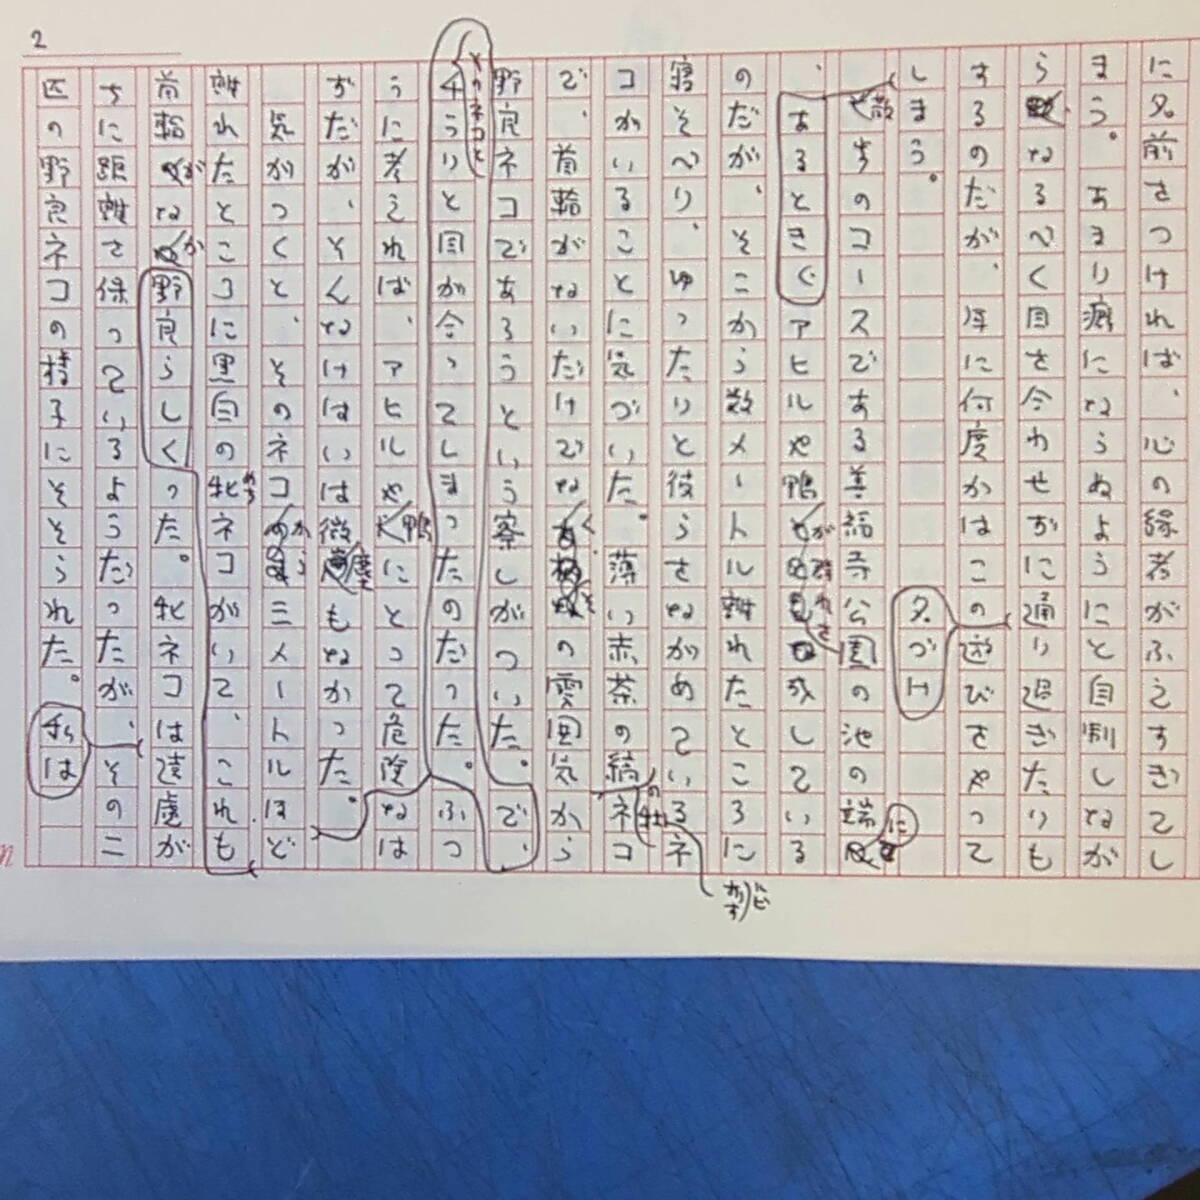 2
に名前をつければ、心の縁者がふえすぎてし
まう。あまり癪にならぬように自制しなが
らなるべく目を合わせずに通り過ぎたりも
するのだが、年に何度かはこの遊びをやって
名づけ
しまう。
散歩のコースである善福寺公園の池の端に
、あるときアヒルや鴨が群れを成している
のだが、そこから数メートル離れたところに
寝そべり、ゆったりと彼らをながめているネ
コがいることに気づいた。薄い赤茶の縞ネコ
の牡
おす
ルビ
で、首輪がないだけでなくその雰囲気から
野良ネコであろうという察しがついた。で、
そのネコと
ふつうりと目が合ってしまったのだった。ふつ
うに考えればアヒルや鴨にとって危険なは
ずだが、そんなけはいは微塵もなかった。
気がつくと、そのネコから三メートルほど
離れたところに黒白の牝ネコがいて、これも
めす
首輪がなか野良らしくった。牝ネコは遠慮が
ちに距離を保っているようだったが、その二
匹の野良ネコの様子にそそられた。私は